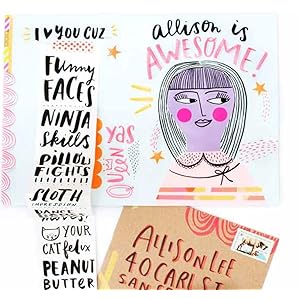 I ♥ YOU CUZ
FUnny
FACES
NINJA
Skills
PillOW
FIGHTS
SLOTH
YOUR
CAT felix
PEANUT
BUTTER
yas
Queen
allison is
AWESOME!
ALLISON LEE
40 CARL ST